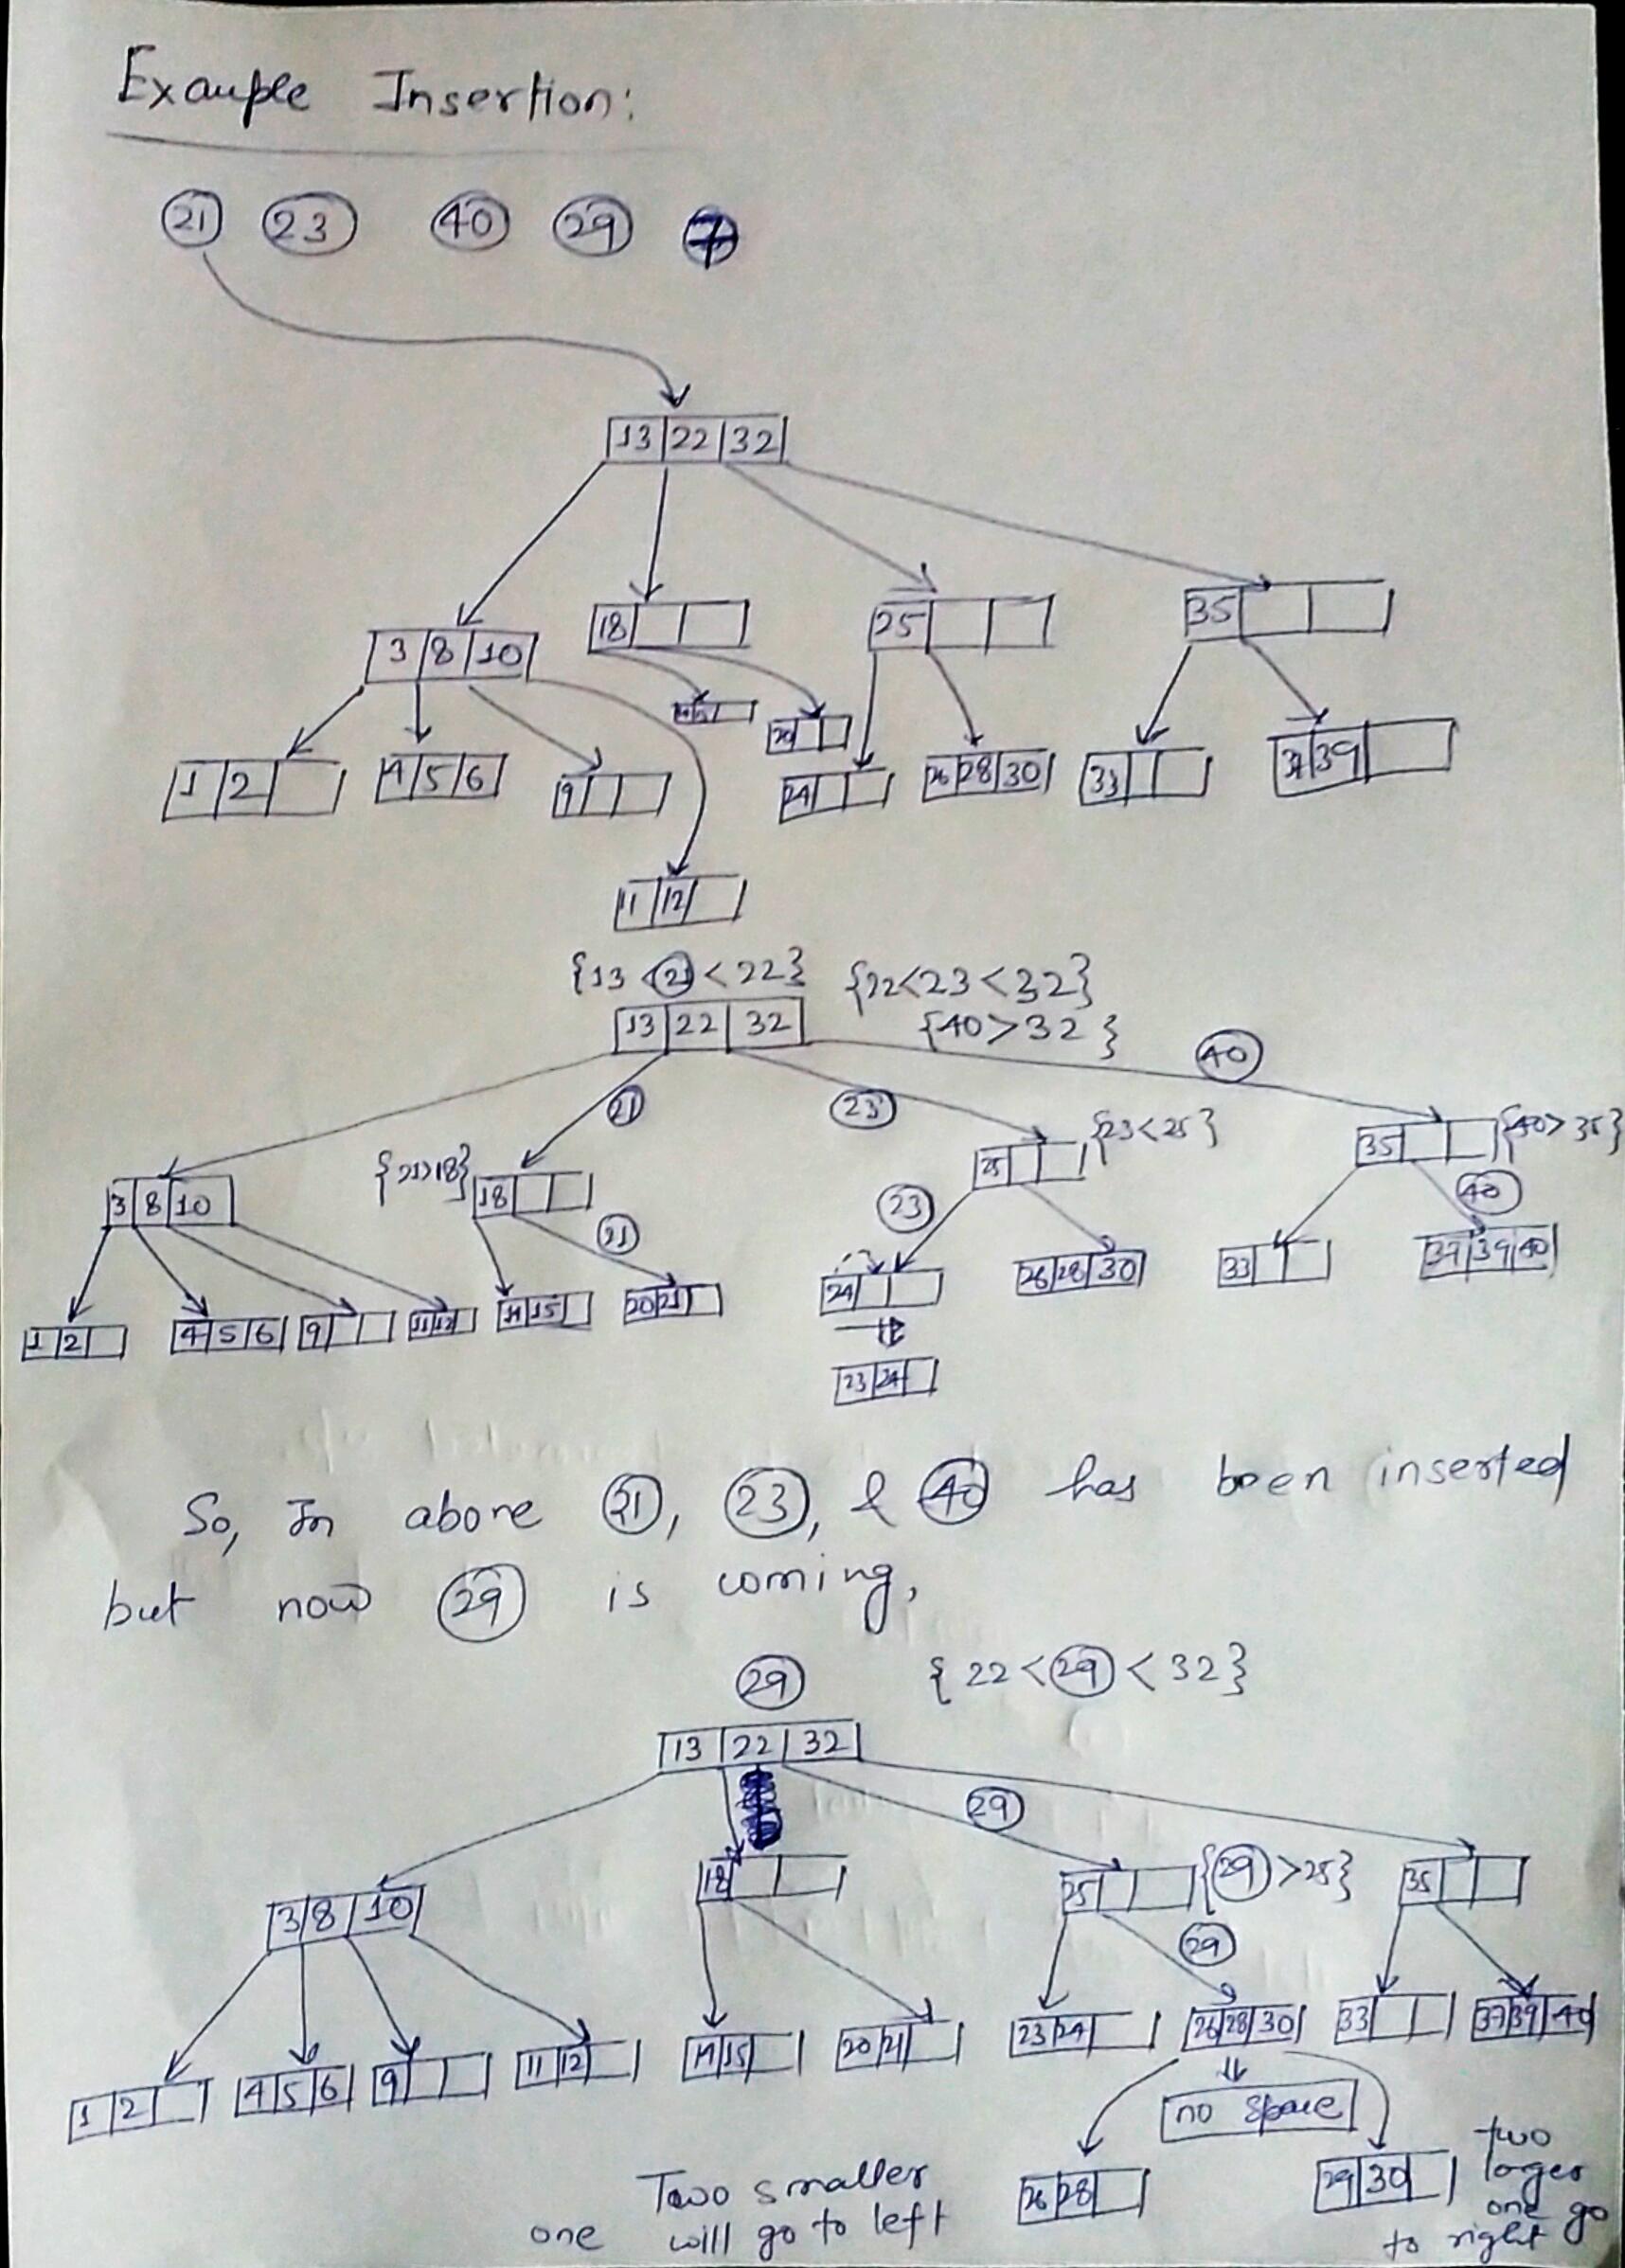 Example Insertion:
21 23 40 29 7
13 22 32
3 8 10 18 25 35
1 2 4 5 6 9 20 24 26 28 30 33 39
11 12
{13 < 21 < 22} {22<23<32}
13 22 32 {40>32}
40
21 23 {23<25} 35 {40>35}
3 8 10 {21>18} 18 25
21 23 40
1 2 4 5 6 9 11 12 14 15 20 21 24 26 28 30 33 37 39 40
23 24
So, In above 21, 23, & 40 has been inserted
but now 29 is coming,
29 {22 < 29 < 32}
13 22 32
29
3 8 10 18 25 {29 > 25} 35
29
1 2 4 5 6 9 11 12 14 15 20 21 23 24 26 28 30 33 37 39 40
no space
Two smaller 26 28 29 30 two
one will go to left larger
one go
to right